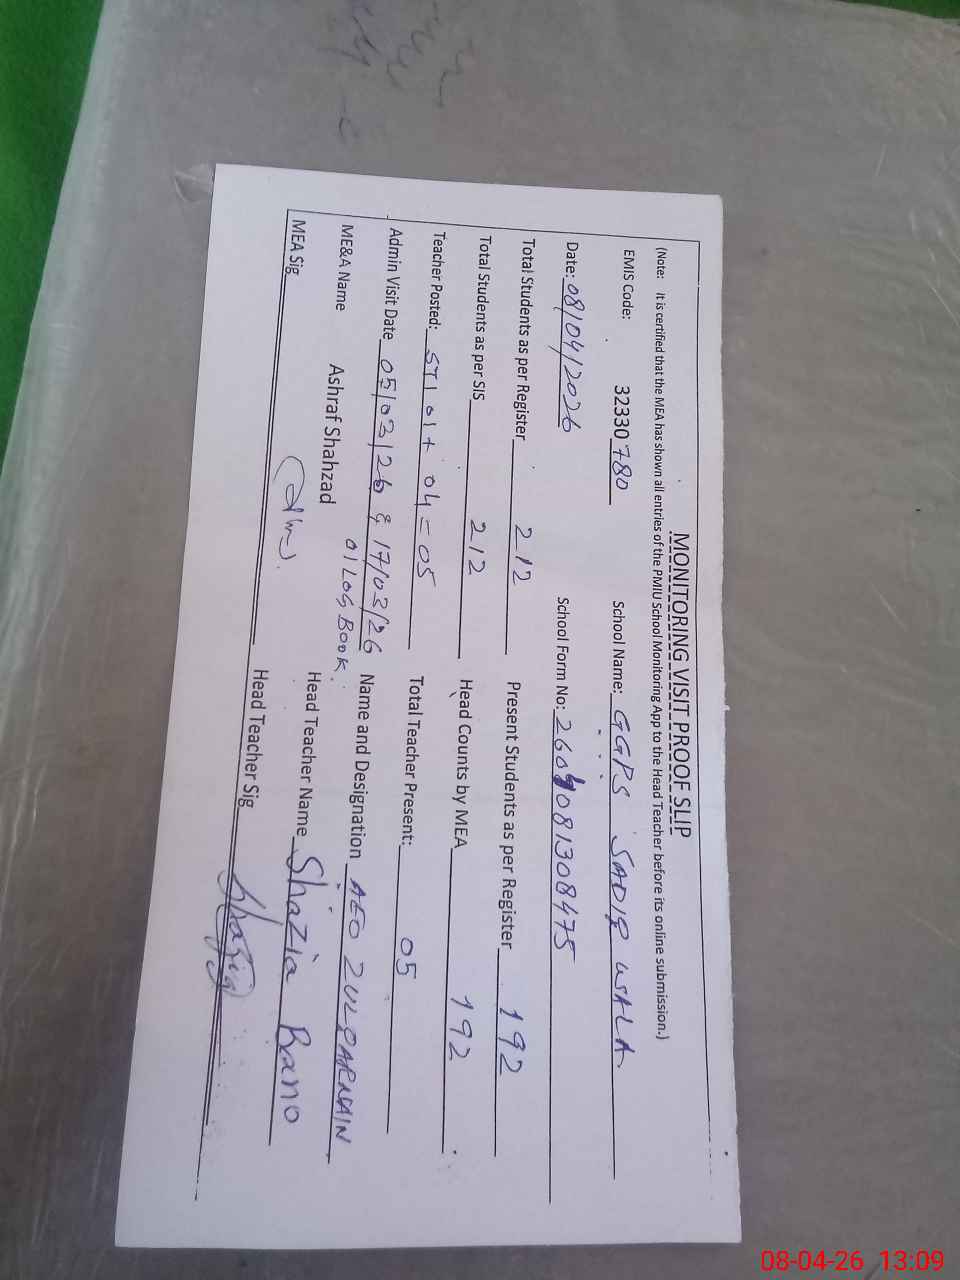 MONITORING VISIT PROOF SLIP
(Note: It is certified that the MEA has shown all entries of the PMIU School Monitoring App to the Head Teacher before its online submission.)
EMIS Code: 32330780 School Name: GGPS SADIQ WALA
Date: 08/04/2026 School Form No: 2604081308475
Total Students as per Register 212 Present Students as per Register 192
Total Students as per SIS 212 Head Counts by MEA 192
Teacher Posted: STI 01+ 04 = 05 Total Teacher Present: 05
Admin Visit Date 05/03/26 & 17/03/26 Name and Designation AEO ZULQARNAIN
01 LOG BOOK.
ME&A Name Ashraf Shahzad Head Teacher Name Shazia Bano
MEA Sig Head Teacher Sig Shazia
08-04-26 13:09